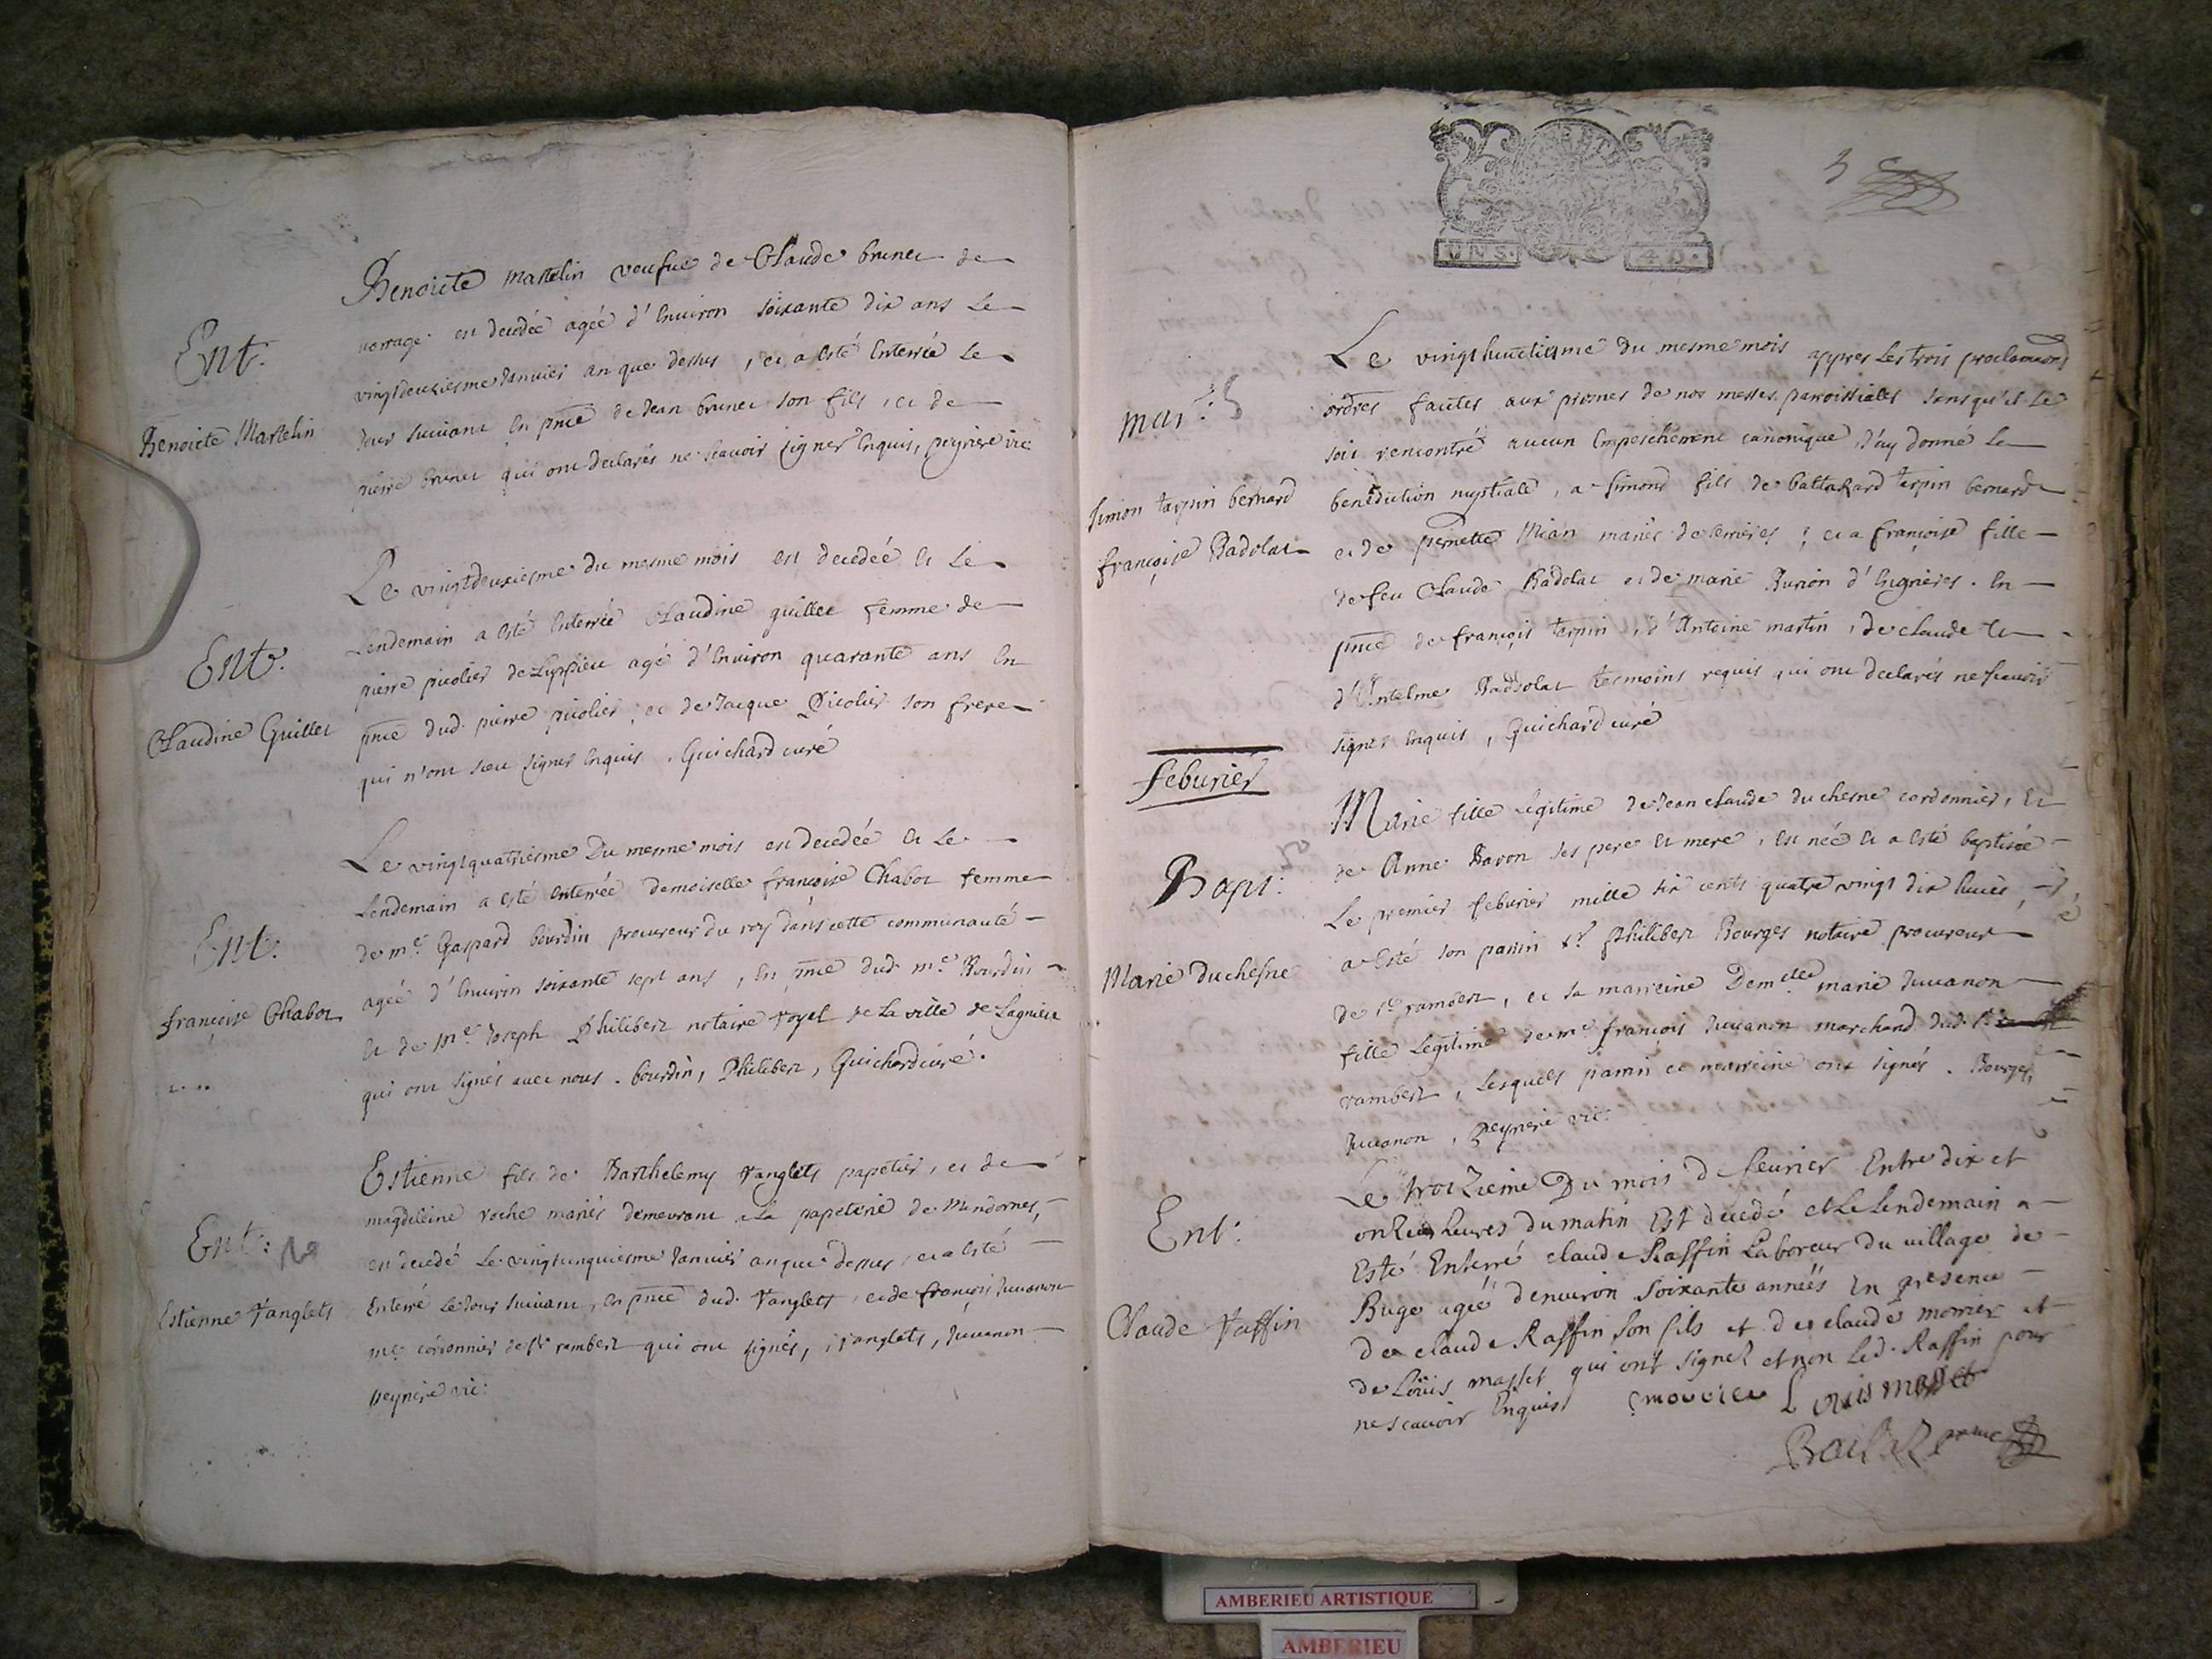 Benoicte Martelin veufue de Claude brunet de
Ent.
vorrage est decedée agée d'Enuiron soixante dix ans Le
vingtdeuxiesme Januier an que dessus, et a esté Enterrée Le
Benoicte Martelin
Jour suiuant En pnce de Jean brunet son fils, et de
pierre brunet qui ont declarés ne scauoir signer Enquis, peyriere vic
Le vingtdeuxiesme du mesme mois est decedée et Le
Ent.
Lendemain a esté Enterrée Claudine guillet femme de
pierre picolier de Lyppieu agé d'Enuiron quarante ans En
Claudine Guillet
pnce dud. pierre picolier, et de Jacque Picolier son frere
qui n'ont sceu signer Enquis. Guichard curé
Le vingtquatriesme Du mesme mois est decedée et Le
Ent.
Lendemain a esté enterrée demoiselle françoise Chabot femme
de me. Gaspard bourdin procureur du roy dans cette communauté
françoise Chabot
agée d'Enuiron soixante sept ans, En pnce dud. me. Bourdin
et de me. Joseph Philibert notaire royal de La ville de Lagnieu
qui ont signés auec nous. bourdin, Philibert, Guichard curé.
Estienne fils de Barthelemy Vanglets papetier, et de
Ent:
magdeleine roche mariés demeurant a La papeterie de
est decedé Le vingtcinquiesme Januier an que dessus, et a esté
Estienne Vanglets
Enterré Le Jour suiuant, En pnce dud. Vanglets, et de françois Juuanon
me. cordonnier de St rambert qui ont signés, Vanglets, Juuanon
peyriere vic:
UN S. 4 D.
3
Le vingthuictiesme du mesme mois appres Les trois proclamaons
mar: 5
ordres faites aux prosnes de nos messes paroissiales sans qu'il se
soit rencontré aucun Empeschement canonique, J'ay donné Le
Simon tarpin bernard
benediction nuptiale, a simond fils de baltazard tarpin bernard
françoise Badolat
et de pernette Mian mariés de serrieres; et a françoise fille
de feu Claude Badolat et de marie Burion d'Eugnieres. En
pnce de françois tarpin, d'Antoine martin, de claude et
d'Antelme Baddolat tesmoins requis qui ont declarés ne scauoir
signer Enquis, Guichard curé
feburier
Marie fille Legitime de Jean claude duchesne cordonnier, Et
Bapt:
de Anne Baron ses pere et mere, est née et a esté baptisée
Le premier feburier mille six cents quatre vingt dix huict,
Marie Duchesne
a esté son parrin sr. Philibert Bourges notaire procureur
de St. rambert, et sa marreine Demelle marie Juuanon
fille Legitime de me françois Juuanon marchand dud. St.
rambert, Lesquels parrin et marreine ont signés. Bourges,
Juuanon, Peyriere vic:
Le troizieme Du mois d feurier Entre dix et
Ent:
onze heures du matin Est decedé et Le lendemain a
Esté Enterré claude Raffin Laboreur du uillage de
Buge agée denuiron soixante années En presence
Claude Raffin
de claude Raffin son fils et de claude morrier et
de Loüis masset qui ont signez et non Led. Raffin pour
ne scauoir Enquis, Cmorrier Louis masset
AMBERIEU ARTISTIQUE
AMBERIEU